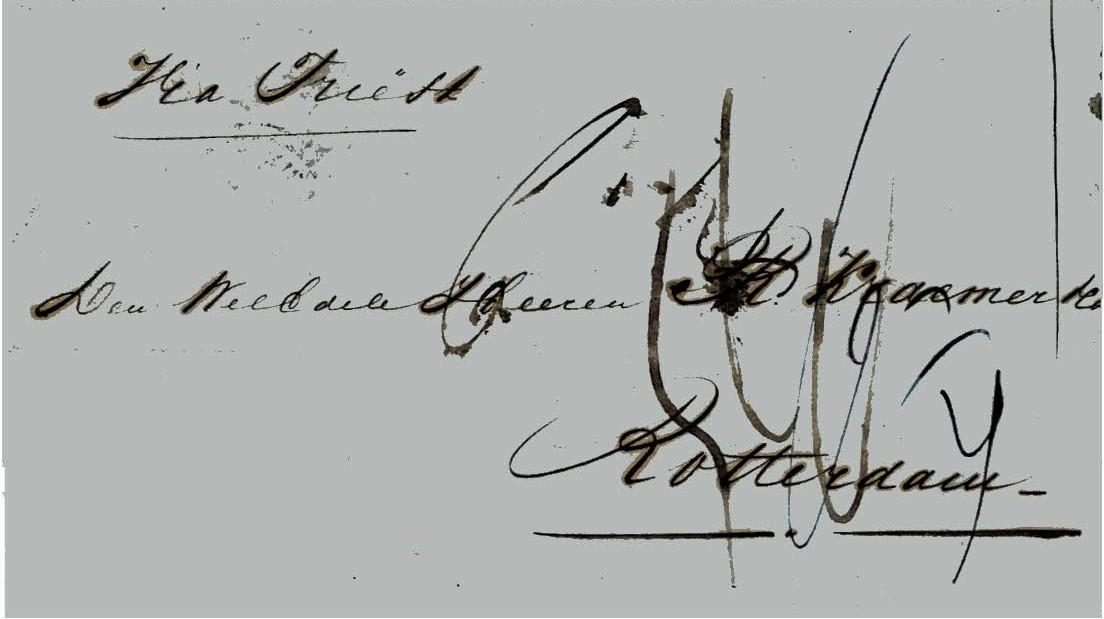 Via Triëst
Den Weledele Heeren M. Kraemer &Co
Rotterdam_